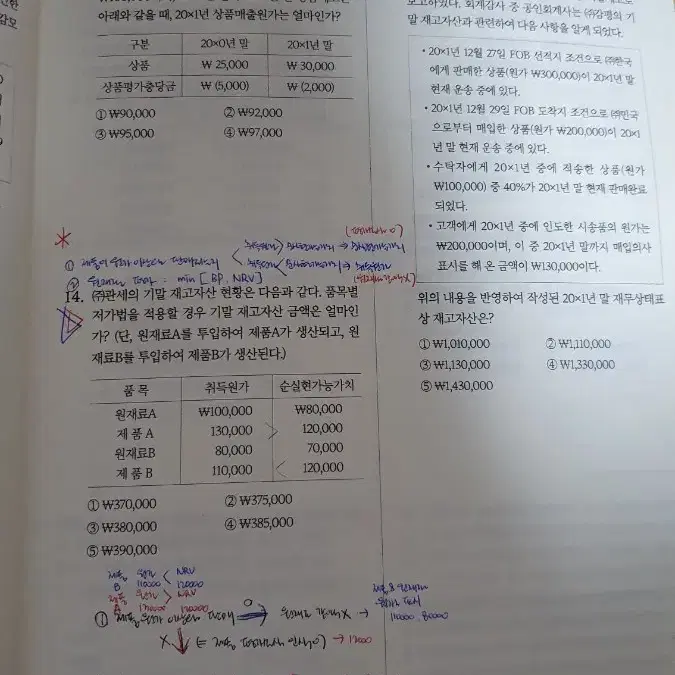 아래와 같을 때, 20×1년 상품매출원가는 얼마인가?
구분 20×0년 말 20×1년 말
상품 ₩ 25,000 ₩ 30,000
상품평가충당금 ₩ (5,000) ₩ (2,000)
① ₩90,000 ② ₩92,000
③ ₩95,000 ④ ₩97,000
② 원재료 평가 : min [ BP, NRV ]
14. ㈜관세의 기말 재고자산 현황은 다음과 같다. 품목별
저가법을 적용할 경우 기말 재고자산 금액은 얼마인
가? (단, 원재료A를 투입하여 제품A가 생산되고, 원
재료B를 투입하여 제품B가 생산된다.)
품 목 취득원가 순실현가능가치
원재료A ₩100,000 ₩80,000
제 품 A 130,000 > 120,000
원재료B 80,000 70,000
제 품 B 110,000 < 120,000
① ₩370,000 ② ₩375,000
③ ₩380,000 ④ ₩385,000
⑤ ₩390,000
제품 원가 < NRV
B 110000 120000
제품 원가 > NRV
A 130000 120000
110000, 80000
말 재고자산과 관련하여 다음 사항을 알게 되었다.
• 20×1년 12월 27일 FOB 선적지 조건으로 ㈜한국
에게 판매한 상품(원가 ₩300,000)이 20×1년 말
현재 운송 중에 있다.
• 20×1년 12월 29일 FOB 도착지 조건으로 ㈜민국
으로부터 매입한 상품(원가 ₩200,000)이 20×1
년 말 현재 운송 중에 있다.
• 수탁자에게 20×1년 중에 적송한 상품(원가
₩100,000) 중 40%가 20×1년 말 현재 판매완료
되었다.
• 고객에게 20×1년 중에 인도한 시송품의 원가는
₩200,000이며, 이 중 20×1년 말까지 매입의사
표시를 해 온 금액이 ₩130,000이다.
위의 내용을 반영하여 작성된 20×1년 말 재무상태표
상 재고자산은?
① ₩1,010,000 ② ₩1,110,000
③ ₩1,130,000 ④ ₩1,330,000
⑤ ₩1,430,000